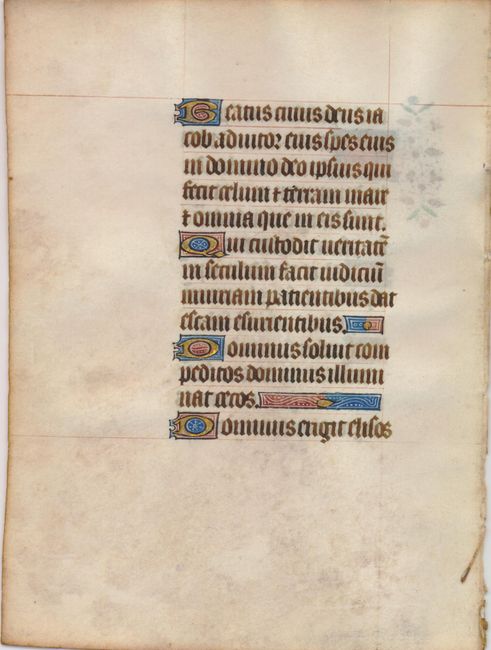 Beatus cuius deus ia
cob adiutor eius spes eius
in domino deo ipsius qui
fecit celum ⁊ terram mare
⁊ omnia que in eis sunt.
Qui custodit ueritatē
in seculum facit iudiciū
iniuriam patientibus dat
escam esurientibus.
Dominus soluit com
peditos dominus illumi
nat cecos.
Dominus erigit elisos